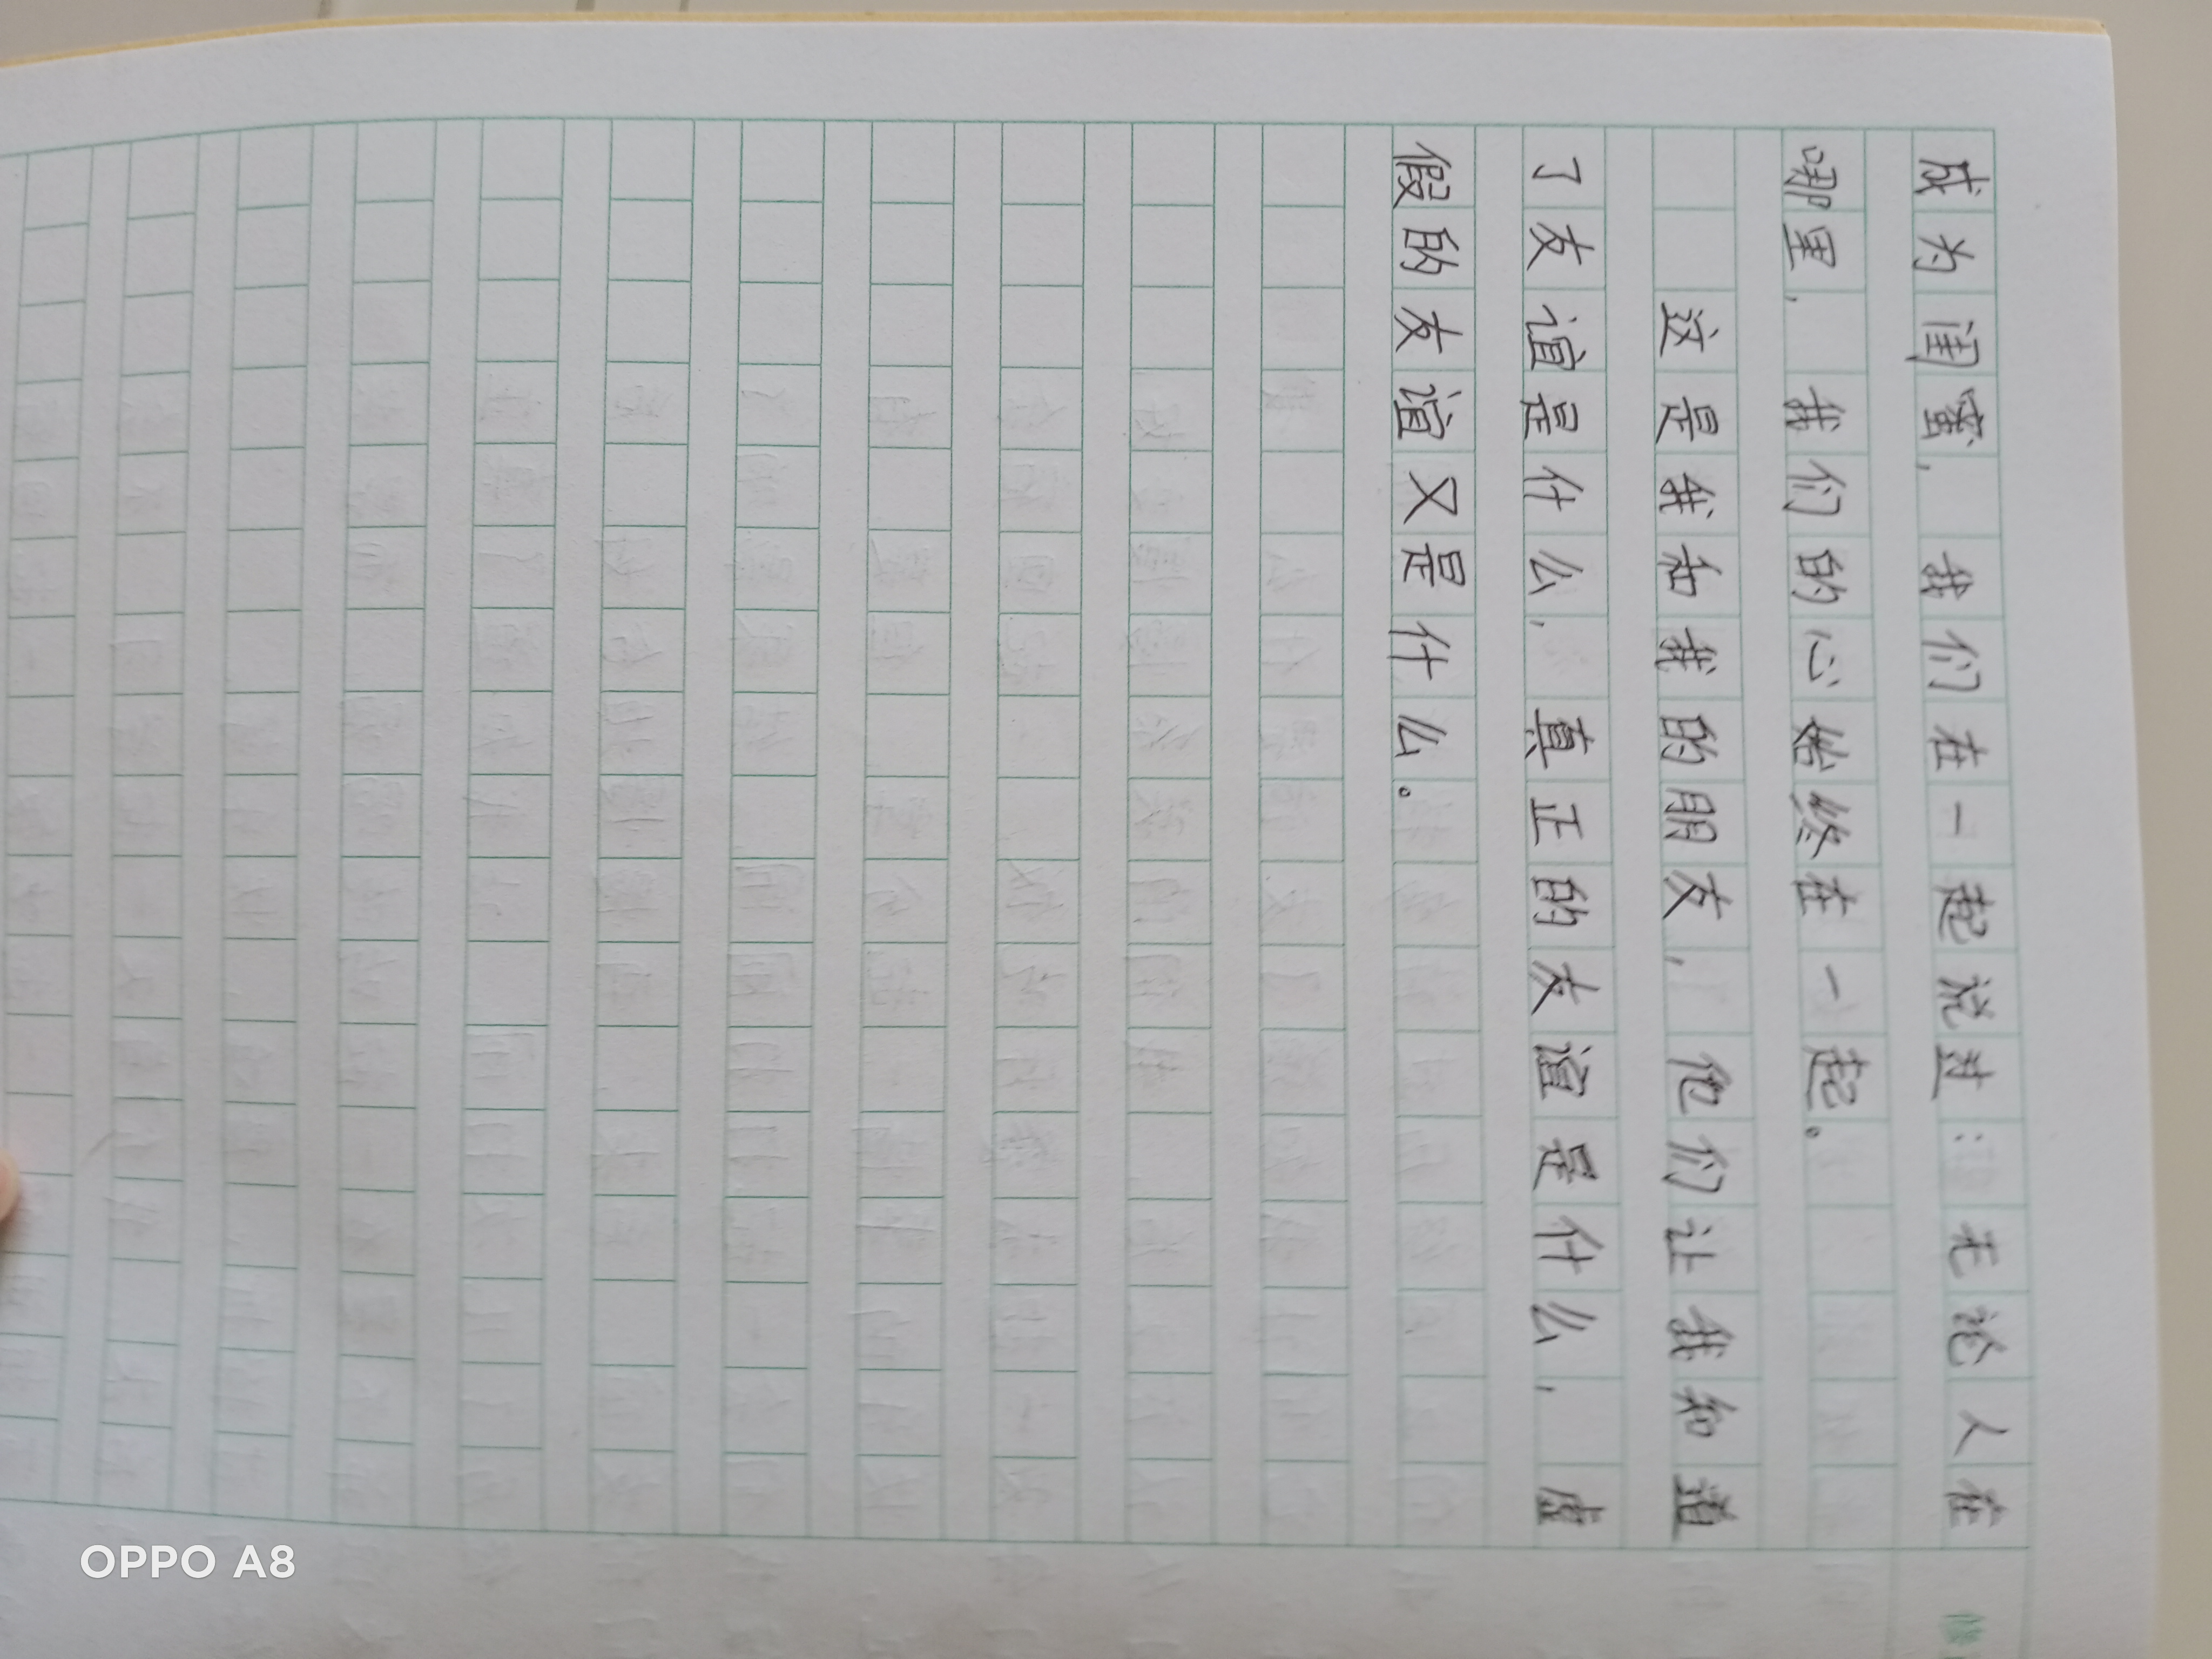 成为闺蜜，我们在一起说过：无论人在
哪里，我们的心始终在一起。
这是我和我的朋友，他们让我知道
了友谊是什么，真正的友谊是什么，虚
假的友谊又是什么。
OPPO A8